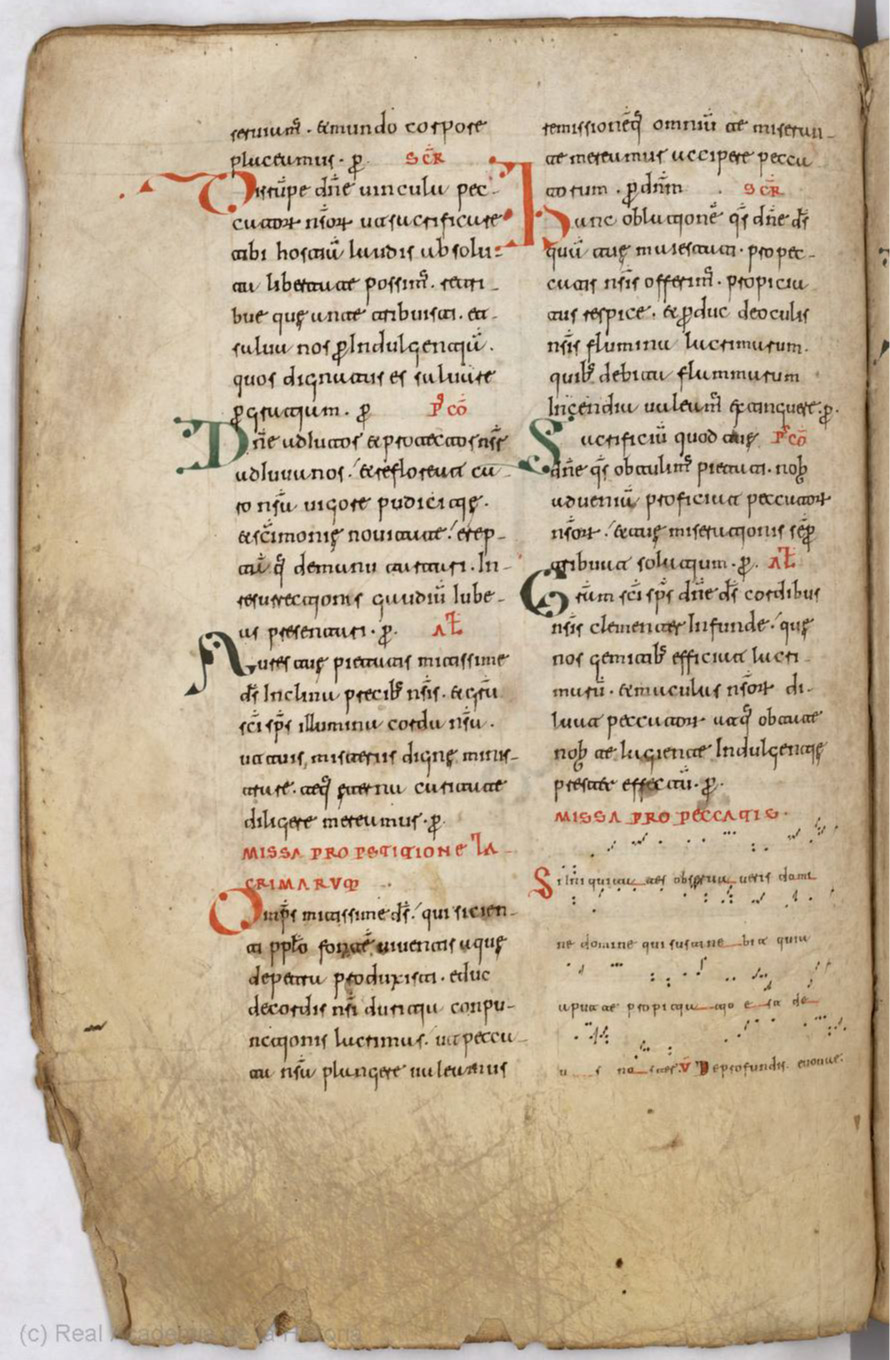 seruiam᷒. & mundo corpore
placeamus. ꝑ. SCR̄
Disrūpe dn̄e uincula pec-
catorꝝ nsōrꝝ ut sacrificare
tibi hostiā laudis absolu-
ta libertate possim᷒. retri-
bue quę ante tribuisti. et-
salua nos ꝑ Indulgentiā.
quos dignatus es saluare
ꝑ gratiam. ꝑ P᷒ cō
Dn̄e adiutor & protector nsr̄
adiuua nos. & refloreat ca-
ro nsā uigore pudicitię.
& scīmonię nouitate. erep-
tā q̄ de manu tartari. In-
resurrectionis gaudiū iube-
as presentari. ꝑ. AŁ
Aures tuę pietatis mitissime
ds̄ Inclina precib; nsīs. & grā
scī sps̄ illumina corda nsā.
ut tuis misteriis dignę minis-
trare. teq̄ ęterna caritate
diligere mereamus. ꝑ
MISSA PRO PETITIONE LA
CRIMARUM
Omp̄s mitissime ds̄. qui sicien-
ti pplō fonte uiuentis aquę
de petra produxisti. educ
de cordis nsī duritia conpu-
nctionis lacrimas. ut pecca
ta nsā plangere ualeamus
remissionēq̄ omniū te miseran-
te mereamus accipere pecca
torum. ꝑ dnm̄. SCR̄
Hanc oblationē qs̄ dn̄e ds̄
quā tuę maiestati. pro pec-
catis nsīs offerim᷒. propicia
tus respice. & ꝑduc de oculis
nsīs flumina lacrimarum.
quib; debita flammarum
Incendia ualeam᷒ extinguere. ꝑ.
Sacrificiū quod tuę P᷒ cō
dn̄e qs̄ obtulim᷒ pietati. nob̄
ad ueniā proficiat peccatorꝝ
nsōrꝝ. & tuę miserationis sēꝑ
tribuat solatium. ꝑ. AŁ
Grām scī sps̄ dn̄e ds̄ cordibus
nsīs clementer Infunde. quę
nos gemitib; efficiat lacri-
marū. & maculas nsōrꝝ di-
luat peccatorꝝ atq̄ obtate
nob̄ te lugiente Indulgentię
prestet effectū. ꝑ.
MISSA PRO PECCATIS.
Si Iniquitates obserua ueris domi
ne domine qui sustinebit quia
apud te propiciatio est a de
us noster. V De profundis. euouae.
(c) Real Academia de la Historia